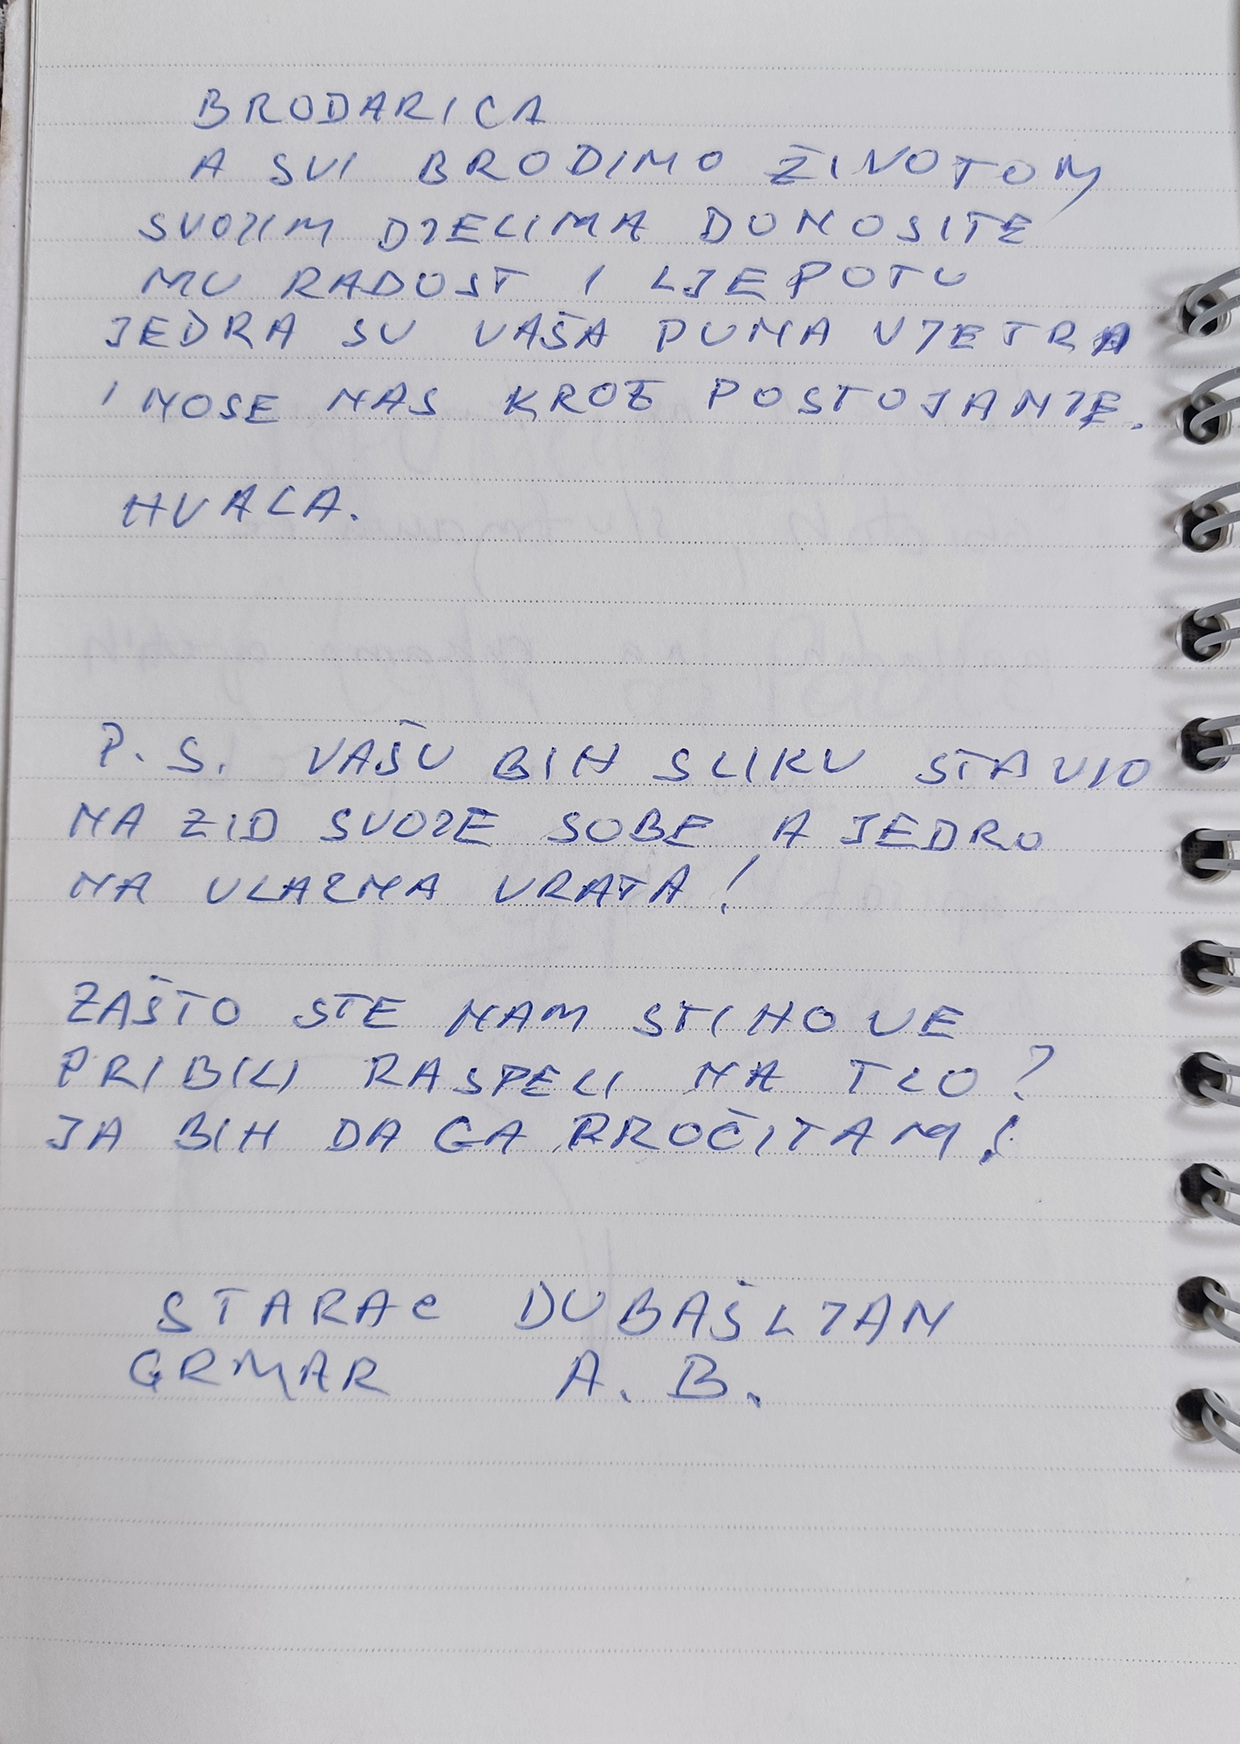 BRODARICA
A SVI BRODIMO ŽIVOTOM
SVOJIM DJELIMA DONOSITE
MU RADOST I LJEPOTU
JEDRA SU VAŠA PUNA VJETRA
I NOSE NAS KROZ POSTOJANJE.
HVALA.
P.S. VAŠU BIH SLIKU STAVIO
NA ZID SVOJE SOBE A JEDRO
NA ULAZNA VRATA!
ZAŠTO STE NAM STIHOVE
PRIBILI RASPELI NA TLO?
JA BIH DA GA PROČITAM!
STARAC DUBAŠLJAN
GRMAR A. B.